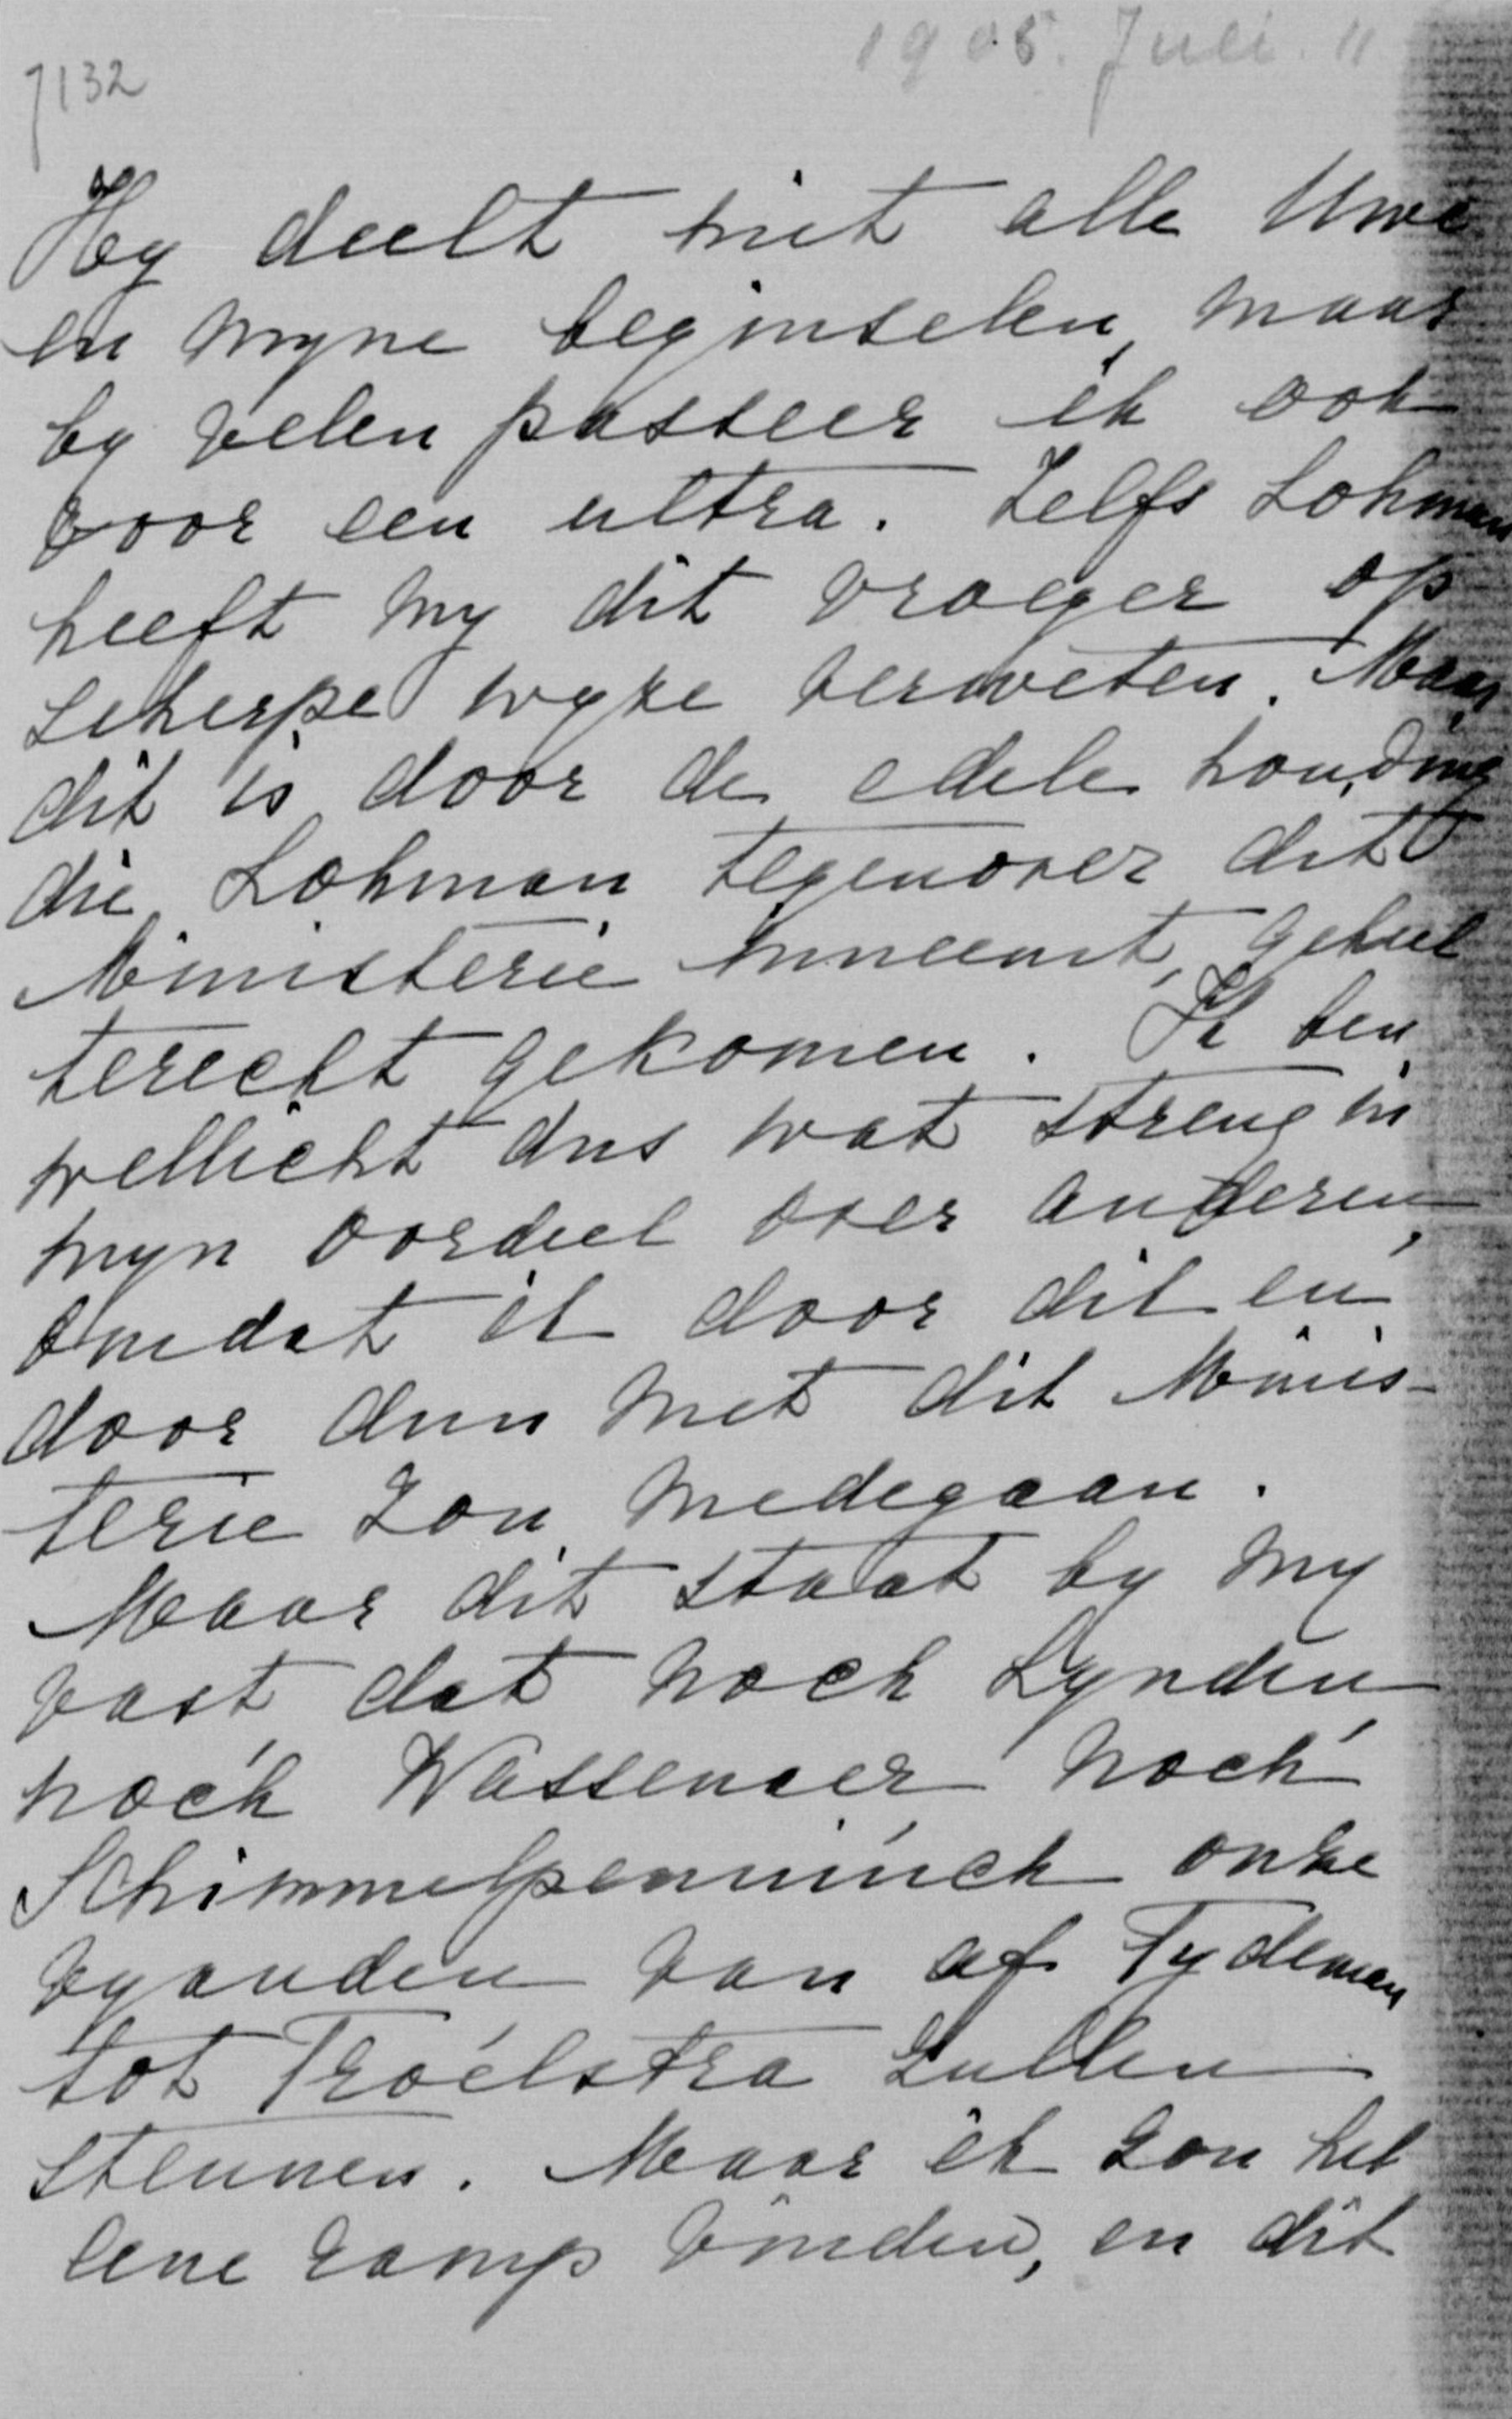 1905. Juli. 11
7132
Hy deelt niet alle Uwe
en myne beginselen, maar
by velen passeer ik ook
voor een ultra. Zelfs Lohman
heeft my dit vroeger op
scherpe wyze verweten. Maar
dit is door de edele houding
die Lohman tegenover dit
Ministerie inneemt, geheel
terecht gekomen. Ik ben
wellicht dus wat streng in
myn oordeel over anderen,
omdat ik door dik en
door dun met dit Minis-
terie zou medegaan.
Maar dit staat by my
vast dat noch Lynden
noch Wassenaer noch
Schimmelpenninck onze
vyanden van af Tydeman
tot Troelstra zullen
steunen. Maar ik zou het
eene ramp vinden, en dit